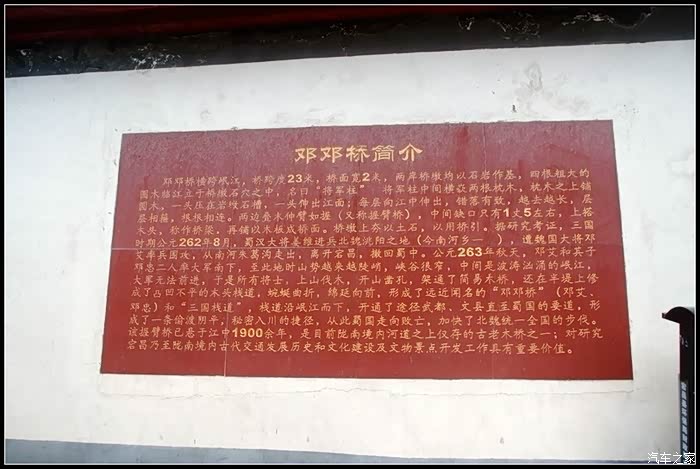 邓邓桥简介
邓邓桥横跨岷江，桥跨度23米，桥面宽2米，两岸桥墩均以石岩作基，四根粗大的
圆木临江立于桥墩石穴之中，名曰“将军柱” 将军柱中间横嵌两根枕木，枕木之上铺
圆木，一头压在岩墩石槽，一头伸出江面；每层向江中伸出，错落有致，越去越长，层
层相箍，根根相连。两边叠木伸臂如握（又称握臂桥），中间缺口只有1丈5左右，上搭
木头，称作桥梁，再铺以木板成桥面。桥墩上夯以土石，以用桥引。据研究考证，三国
时期公元262年8月，蜀汉大将姜维进兵北魏洮阳之地（今南河乡一 ），遭魏国大将邓
艾率兵围攻，从南河朱葛沟走出，离开宕昌，撤回蜀中。公元263年秋天，邓艾和其子
邓忠二人率大军南下，至此地时山势越来越陡峭，峡谷很窄，中间是波涛汹涌的岷江，
大军无法前进，于是所有将士，上山伐木，开山凿孔，架通了简易木桥，还在半堤上修
成了凸凹不平的木头栈道，蜿蜒曲折，绵延向前，形成了远近闻名的“邓邓桥”（邓艾、
邓忠）和“三国栈道”。栈道沿岷江而下，开通了途径武都、文县直至蜀国的要道，形
成了一条偷渡阴平，秘密入川的捷径，从此蜀国走向败亡，加快了北魏统一全国的步伐。
该握臂桥已悬于江中1900余年，是目前陇南境内河道之上仅存的古老木桥之一；对研究
宕昌乃至陇南境内古代交通发展历史和文化建设及文物景点开发工作具有重要价值。
汽车之家